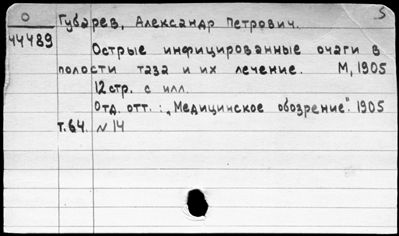 О Губарев, Александр Петрович. S
44489
Острые инфицированные очаги в
полости таза и их лечение. М, 1905
12 стр. с илл.
Отд. отт.: „Медицинское обозрение". 1905
т.64. N 14